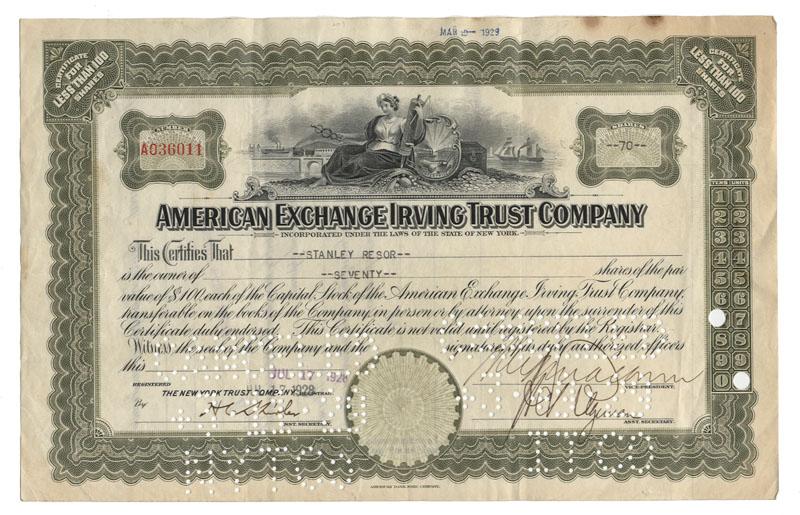 MAR 2- 1929
CERTIFICATE FOR LESS THAN 100 SHARES
CERTIFICATE FOR LESS THAN 100 SHARES
NUMBER
A036011
SHARES
--70--
AMERICAN EXCHANGE IRVING TRUST COMPANY
INCORPORATED UNDER THE LAWS OF THE STATE OF NEW YORK.
This Certifies That --STANLEY RESOR--
is the owner of --SEVENTY-- shares of the par
value of $100 each of the Capital Stock of the American Exchange Irving Trust Company,
transferable on the books of the Company, in person or by attorney, upon the surrender of this
Certificate duly endorsed. This Certificate is not valid until registered by the Registrar.
Witness the seal of the Company and the signatures of its duly authorized officers
this JUL 17 1928
REGISTERED JUL 17 1928
THE NEW YORK TRUST COMPANY, REGISTRAR.
VICE-PRESIDENT.
By
ASST. SECRETARY.
ASST. SECRETARY.
TENS UNITS
1 1
2 2
3 3
4 4
5 5
6 6
7
8 8
9 9
0
AMERICAN BANK NOTE COMPANY.